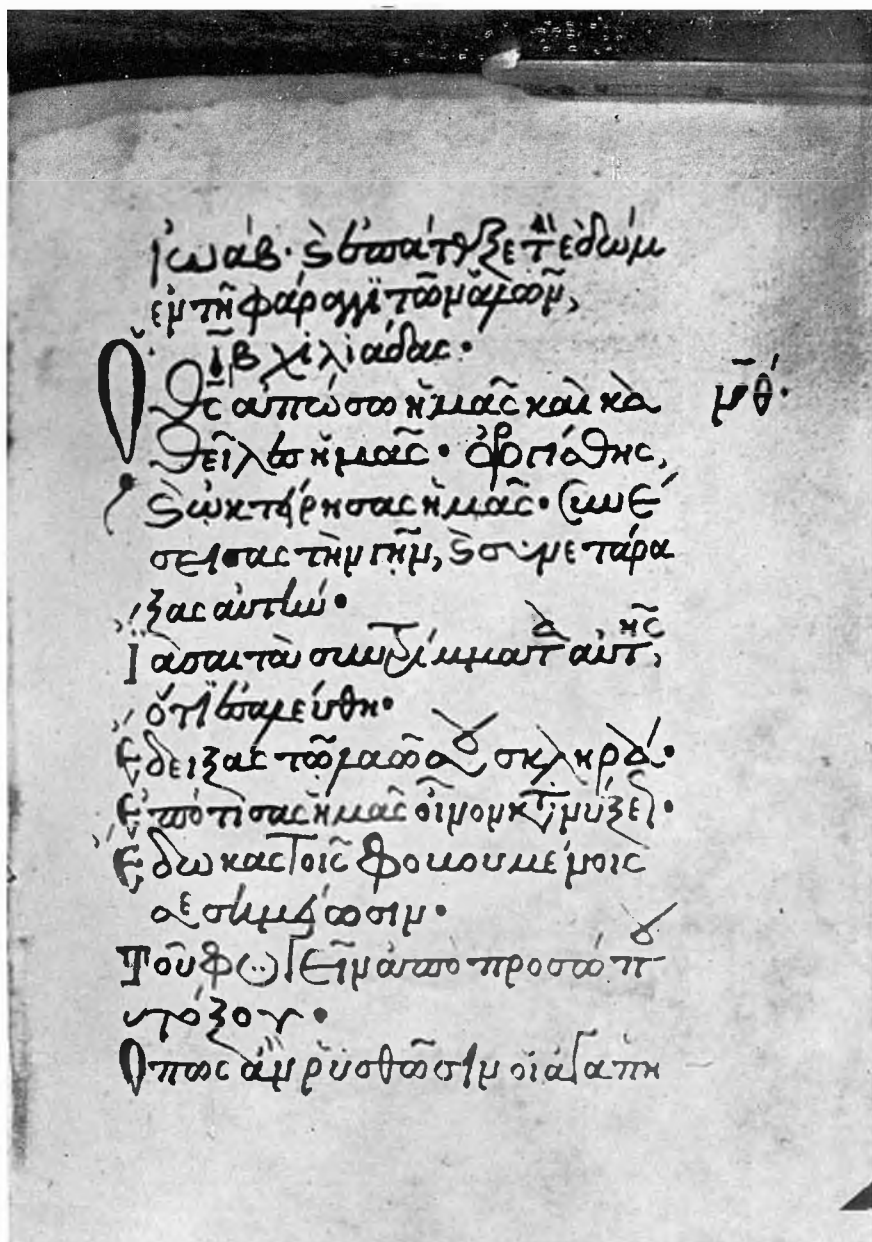 ἰωάβ· καὶ ἐπάταξε τὸν ἐδώμ
ἐν τῆ φάραγγι τῶν ἁλῶν,
ιβ χιλιάδας·
Ὁ θς ἀπώσω ἡμᾶς καὶ κα μθ·
θεῖλες ἡμᾶς· ὀργίσθης,
καὶ ὠκτείρησας ἡμᾶς· Συνέ
σεισας τὴν γῆν, καὶ συνετάρα
ξας αὐτήν·
Ἴασαι τὰ συντρίμματα αὐτῆς,
ὅτι ἐσαλεύθη·
Ἔδειξας τῶ λαῶ σου σκληρά·
Ἐπότισας ἡμᾶς οἶνον κατανύξεως·
Ἔδωκας τοῖς φοβουμένοις
σε σημείωσιν·
Τοῦ φυγεῖν ἀπὸ προσώπου
τόξου·
Ὅπως ἂν ῥυσθῶσιν οἱ ἀγαπη